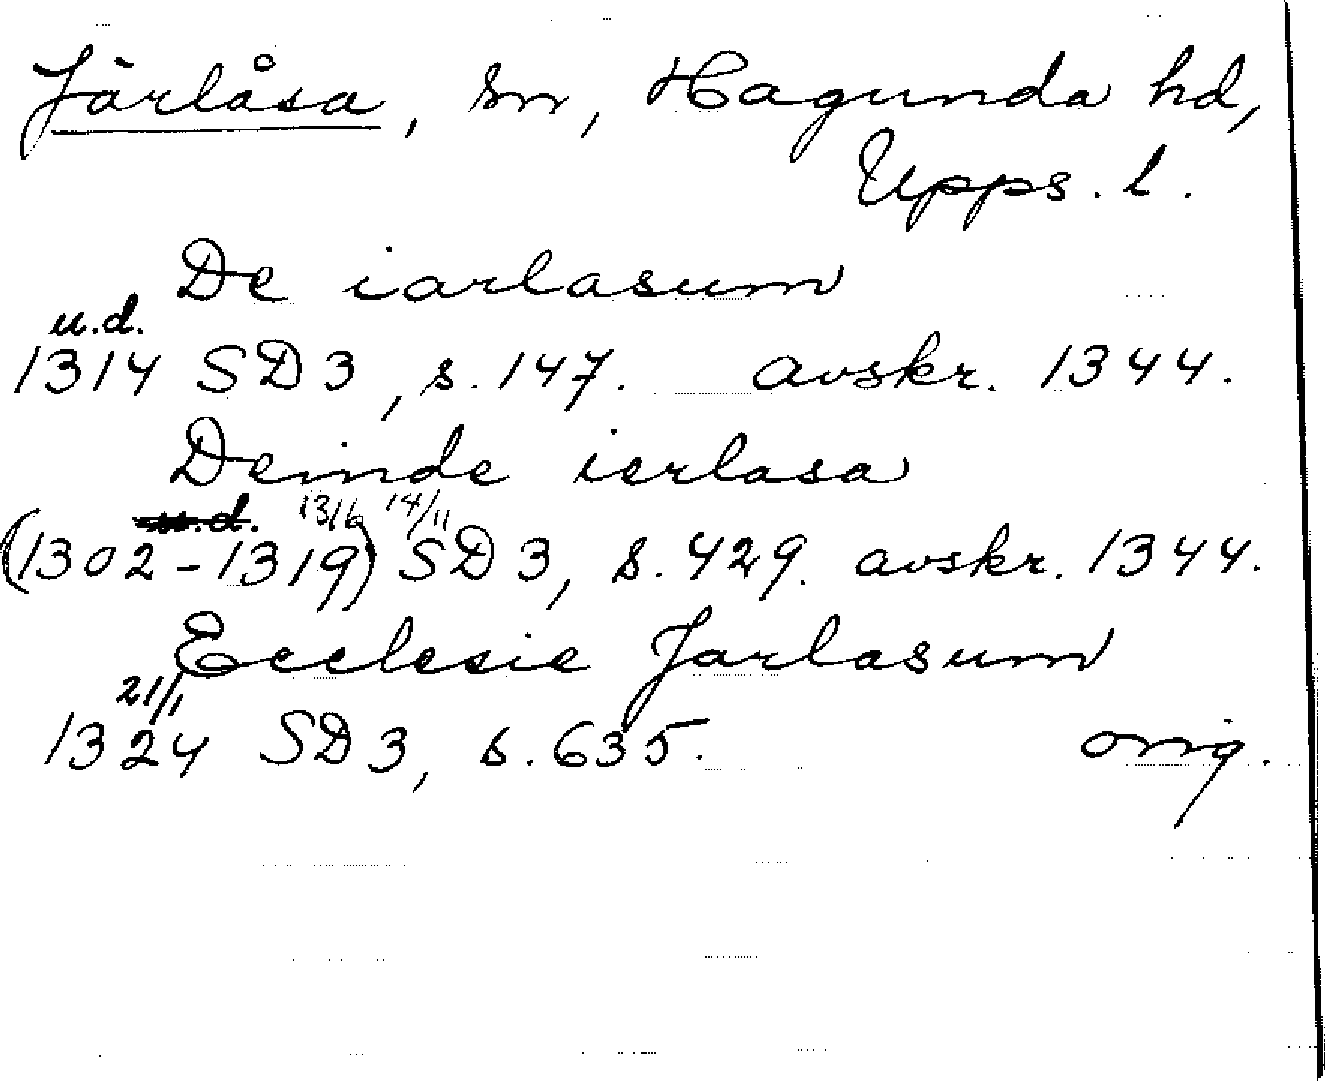 Järlåsa, sn, Hagunda hd,
Upps. l.
De iarlasum
u.d.
1314 SD 3, s. 147. avskr. 1344.
Deinde ierlasa
u.d. 13/6 14/11
(1302-1319) SD 3, s. 429. avskr. 1344.
Ecclesie Jarlasum
21/1
1324 SD 3, s. 635. orig.